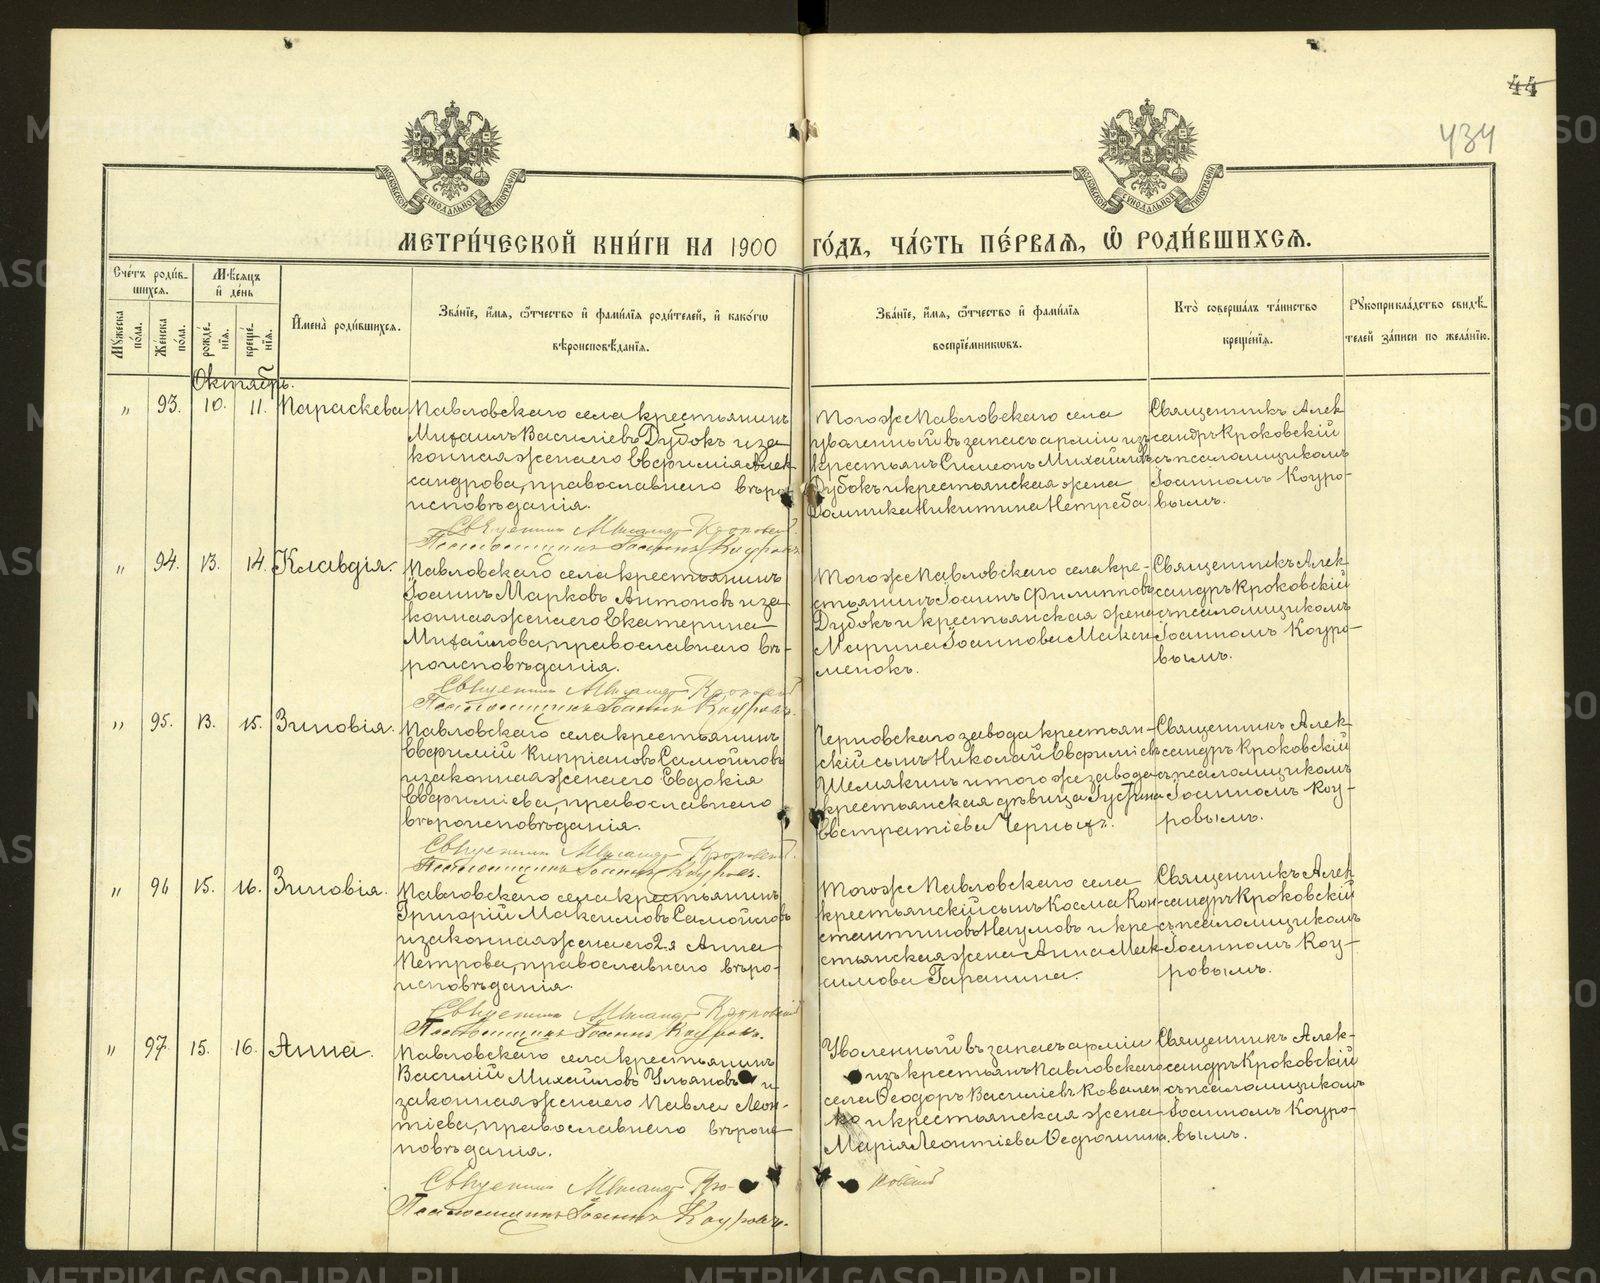 44
434
МОСКОВСКОЙ СУНОДАЛЬНОЙ ТИПОГРАФІИ
МОСКОВСКОЙ СУНОДАЛЬНОЙ ТИПОГРАФІИ
МЕТРИ́ЧЕСКОЙ КНИ́ГИ НА 1900 ГО́ДЪ, ЧА́СТЬ ПЕ́РВАѦ, Ѡ҆ РОДИ́ВШИХСѦ.
Сче́тъ роди́в-
шихсѧ.
Мѣ́сѧцъ
и҆ де́нь
Мꙋ́жеска
по́ла.
Же́нска
по́ла.
рожде́-
нїѧ.
креще́-
нїѧ.
И҆мена̀ роди́вшихсѧ.
Зва́нїе, и҆́мѧ, ѻ҆́тчество и҆ фамі́лїѧ роди́телей, и҆ како́гѡ
вѣроисповѣ́данїѧ.
Зва́нїе, и҆́мѧ, ѻ҆́тчество и҆ фамі́лїѧ
воспрїе́мникѡвъ.
Кто̀ соверша́лъ та́инство
креще́нїѧ.
Рꙋкоприкла́дство свидѣ́-
телей за́писи по жела́нїю.
Октябрь.
" 93. 10. 11. Параскева
Павловскаго села крестьянинъ
Михаилъ Василіевъ Дубокъ и за-
конная жена его Евѳимія Алек-
сандрова, православнаго вѣро-
исповѣданія.
Священникъ Александръ Кроковскій.
Псаломщикъ Іоаннъ Коуровъ.
Того же Павловскаго села
уволенный въ запасъ арміи изъ
крестьянъ Симеонъ Михайловъ
Дубокъ и крестьянская жена
Домника Никитина Нетреба.
Священникъ Алек-
сандръ Кроковскій
съ псаломщикомъ
Іоанномъ Коуро-
вымъ.
" 94. 13. 14. Клавдія.
Павловскаго села крестьянинъ
Іоаннъ Марковъ Антоновъ и за-
конная жена его Екатерина
Михайлова, православнаго вѣ-
роисповѣданія.
Священникъ Александръ Кроковскій
Псаломщикъ Іоаннъ Коуровъ.
Того же Павловскаго села кре-
стьянинъ Іоаннъ Филипповъ
Дубокъ и крестьянская жена
Марина Іоаннова Макси-
менокъ.
Священникъ Алек-
сандръ Кроковскій
съ псаломщикомъ
Іоанномъ Коуро-
вымъ.
" 95. 13. 15. Зиновія.
Павловскаго села крестьянинъ
Евѳимій Кипріановъ Самойловъ
и законная жена его Евдокія
Евѳиміева, православнаго
вѣроисповѣданія.
Священникъ Александръ Кроковскій.
Псаломщикъ Іоаннъ Коуровъ.
Черновскаго завода крестьян-
скій сынъ Николай Евѳиміевъ
Шемякинъ и того же завода
крестьянская дѣвица Іустина
Евстратіева Черныхъ.
Священникъ Алек-
сандръ Кроковскій
съ псаломщикомъ
Іоанномъ Коу-
ровымъ.
" 96 15. 16. Зиновія.
Павловскаго села крестьянинъ
Григорій Максимовъ Самойловъ
и законная жена его 2-я Анна
Петрова, православнаго вѣро-
исповѣданія.
Священникъ Александръ Кроковскій
Псаломщикъ Іоаннъ Коуровъ.
Того же Павловскаго села
крестьянскій сынъ Косма Кон-
стантиновъ Наумовъ и кре-
стьянская жена Анна Мак-
симова Гаранина.
Священникъ Алек-
сандръ Кроковскій
съ псаломщикомъ
Іоанномъ Коу-
ровымъ.
" 97. 15. 16. Анна.
Павловскаго села крестьянинъ
Василій Михайловъ Ульяновъ и
законная жена его Павла Леон-
тіева, православнаго вѣроис-
повѣданія.
Священникъ Александръ Кро-
ковскій
Псаломщикъ Іоаннъ Коуровъ.
Уволенный въ запасъ арміи
изъ крестьянъ Павловскаго
села Ѳеодоръ Василіевъ Ковален-
ко и крестьянская жена
Марія Леонтіева
Священникъ Алек-
сандръ Кроковскій
съ псаломщикомъ
Іоанномъ Коуро-
вымъ.
METRIKI.GASO-URAL.RU